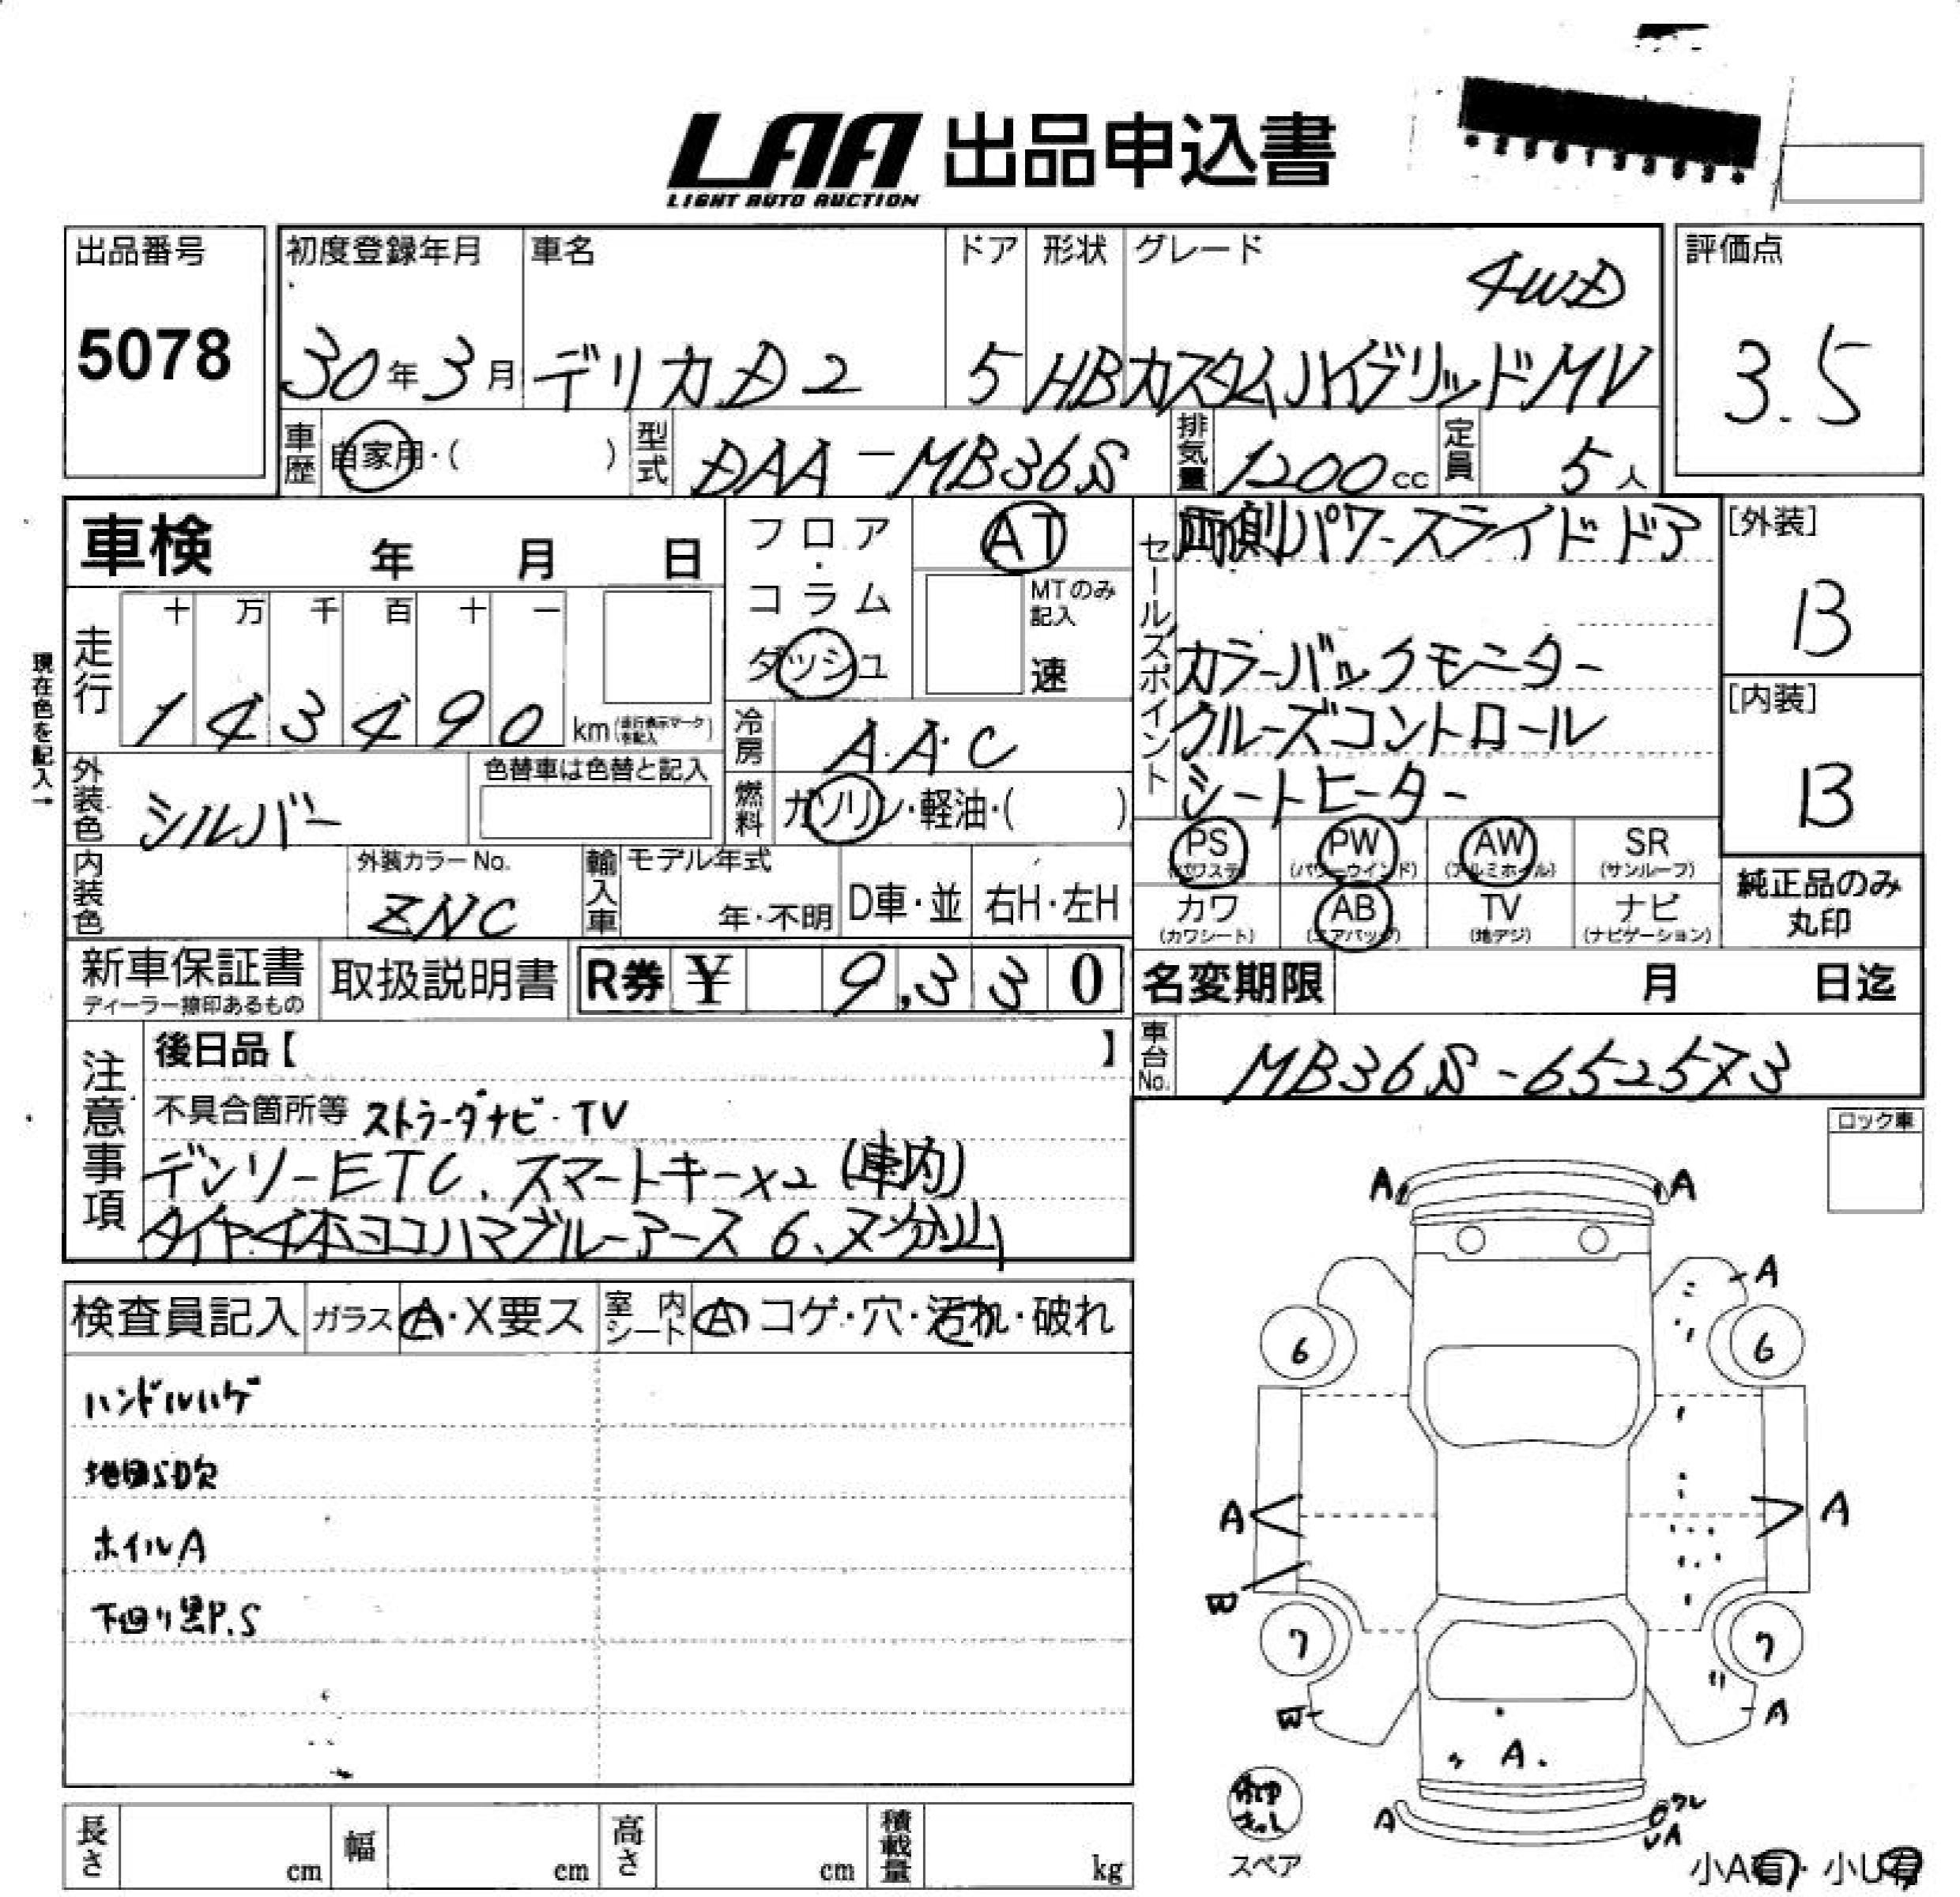 LAA 出品申込書
LIGHT AUTO AUCTION
出品番号
5078
初度登録年月
30年3月
車名
デリカD2
ドア
5
形状
HB
グレード
4WD
カスタムハイブリッドMV
評価点
3.5
車歴 自家用・( )
型式 DAA-MB36S
排気量 1200cc
定員 5人
車検 年 月 日
フロア・コラム
ダッシュ
AT
MTのみ記入
速
現在色を記入→
走行
十 万 千 百 十 一
1 4 3 4 9 0 km(走行表示マークを記入)
冷房 A.A.C
燃料 ガソリン・軽油・( )
外装色 シルバー
色替車は色替と記入
内装色
外装カラーNo.
ZNC
輸入車
モデル年式
年・不明
D車・並
右H・左H
セールスポイント
両側パワースライドドア
カラーバックモニター
クルーズコントロール
シートヒーター
[外装]
B
[内装]
B
PS (パワステ)
PW (パワーウインド)
AW (アルミホイル)
SR (サンルーフ)
カワ (カワシート)
AB (エアバッグ)
TV (地デジ)
ナビ (ナビゲーション)
純正品のみ
丸印
新車保証書
ディーラー捺印あるもの
取扱説明書
R券 ¥ 9,330
名変期限 月 日迄
車台No. MB36S-652573
注意事項
後日品【 】
不具合箇所等 ストラーダナビ・TV
デンソーETC、スマートキー×2(車内)
タイヤ4本ヨコハマブルーアース 6、7分山
検査員記入
ガラス A・X要ス
室内シート A コゲ・穴・汚れ・破れ
ハンドルハゲ
地図SD欠
ホイルA
下回り黒P.S
ロック車
A A
A
6 6
A A
W
7 7
W A
A
A
ワレ
A
スペア
小A有・小U有
長さ cm
幅 cm
高さ cm
積載量 kg